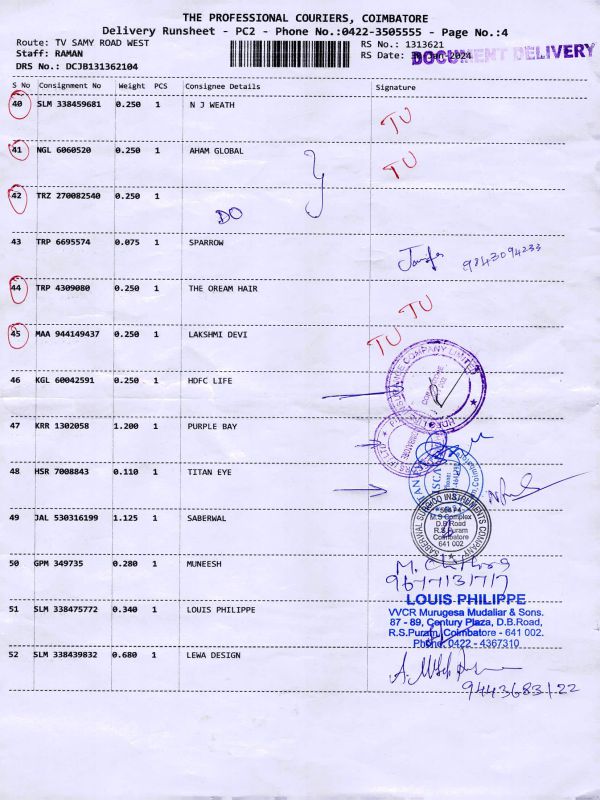 THE PROFESSIONAL COURIERS, COIMBATORE
Delivery Runsheet - PC2 - Phone No.:0422-3505555 - Page No.:4
Route: TV SAMY ROAD WEST
Staff: RAMAN
DRS No.: DCJB131362104
RS No.: 1313621
RS Date: Jan-2024
DOCUMENT DELIVERY
S No Consignment No Weight PCS Consignee Details Signature
40 SLM 338459681 0.250 1 N J WEATH TU
41 NGL 6060520 0.250 1 AHAM GLOBAL TU
42 TRZ 270082540 0.250 1
DO
43 TRP 6695574 0.075 1 SPARROW
9843094233
44 TRP 4309080 0.250 1 THE OREAM HAIR TU
45 MAA 944149437 0.250 1 LAKSHMI DEVI TU
46 KGL 60042591 0.250 1 HDFC LIFE
47 KRR 1302058 1.200 1 PURPLE BAY
48 HSR 7008843 0.110 1 TITAN EYE
49 JAL 530316199 1.125 1 SABERWAL
SABERWAL SURGICO INSTRUMENTS COMPANY
M.S Complex
D.B Road
R.S.Puram
Coimbatore
641 002
50 GPM 349735 0.280 1 MUNEESH
9677131717
51 SLM 338475772 0.340 1 LOUIS PHILIPPE
LOUIS PHILIPPE
VVCR Murugesa Mudaliar & Sons.
87 - 89, Century Plaza, D.B.Road,
R.S.Puram, Coimbatore - 641 002.
Phone: 0422 - 4367310
52 SLM 338439832 0.680 1 LEWA DESIGN
9443683122